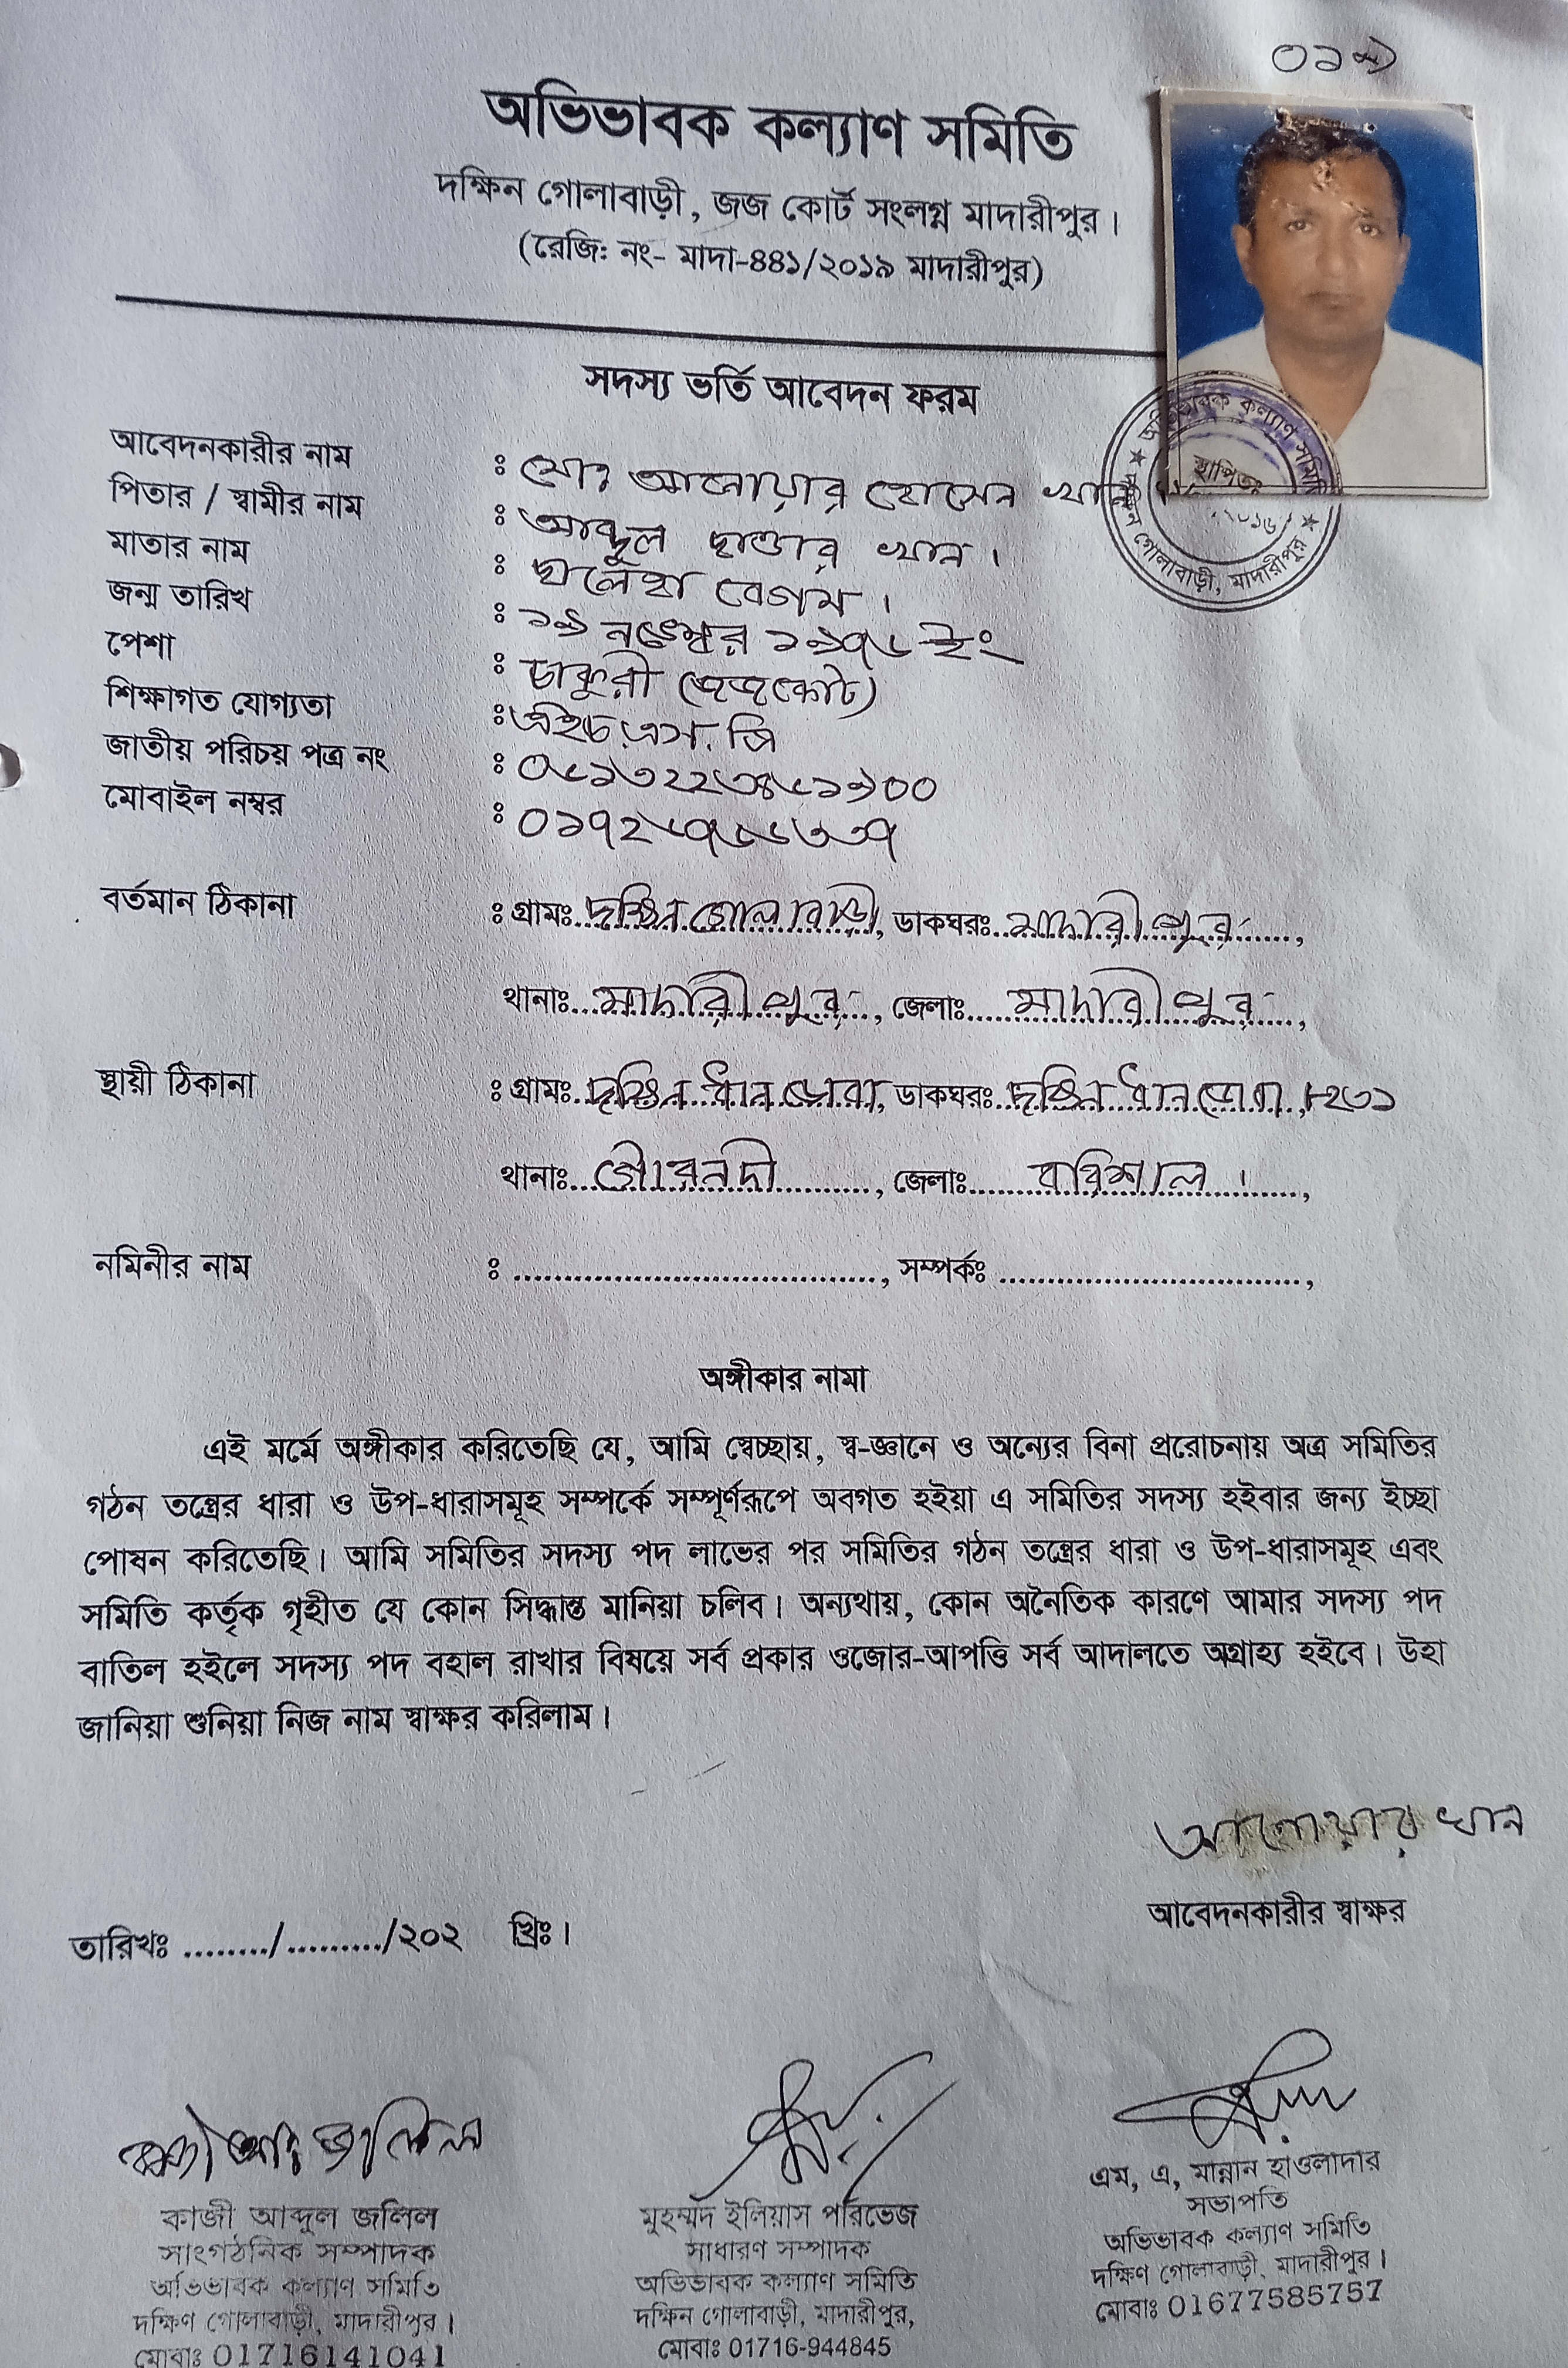 ০১৯
অভিভাবক কল্যাণ সমিতি
দক্ষিন গোলাবাড়ী, জজ কোর্ট সংলগ্ন মাদারীপুর।
(রেজি: নং- মাদা-৪৪১/২০১৯ মাদারীপুর)
সদস্য ভর্তি আবেদন ফরম
আবেদনকারীর নাম : মোঃ আনোয়ার হোসেন খান
পিতার / স্বামীর নাম : আব্দুল ছাত্তার খান।
মাতার নাম : ছালেহা বেগম।
জন্ম তারিখ : ১৯ নভেম্বর ১৯৭৬ ইং
পেশা : চাকুরী (জজকোর্ট)
শিক্ষাগত যোগ্যতা : এইচ.এস.সি
জাতীয় পরিচয় পত্র নং :
মোবাইল নম্বর :
অভিভাবক কল্যাণ সমিতি
স্থাপিতঃ
দক্ষিন গোলাবাড়ী, মাদারীপুর
বর্তমান ঠিকানা : গ্রামঃ দক্ষিন গোলাবাড়ী, ডাকঘরঃ মাদারীপুর,
থানাঃ মাদারীপুর, জেলাঃ মাদারীপুর,
স্থায়ী ঠিকানা : গ্রামঃ দক্ষিন ধানডোবা, ডাকঘরঃ দক্ষিন ধানডোবা, ৮২৩১
থানাঃ গৌরনদী, জেলাঃ বরিশাল।,
নমিনীর নাম : ...................................., সম্পর্কঃ ..............................,
অঙ্গীকার নামা
এই মর্মে অঙ্গীকার করিতেছি যে, আমি স্বেচ্ছায়, স্ব-জ্ঞানে ও অন্যের বিনা প্ররোচনায় অত্র সমিতির
গঠন তন্ত্রের ধারা ও উপ-ধারাসমূহ সম্পর্কে সম্পূর্ণরূপে অবগত হইয়া এ সমিতির সদস্য হইবার জন্য ইচ্ছা
পোষন করিতেছি। আমি সমিতির সদস্য পদ লাভের পর সমিতির গঠন তন্ত্রের ধারা ও উপ-ধারাসমূহ এবং
সমিতি কর্তৃক গৃহীত যে কোন সিদ্ধান্ত মানিয়া চলিব। অন্যথায়, কোন অনৈতিক কারণে আমার সদস্য পদ
বাতিল হইলে সদস্য পদ বহাল রাখার বিষয়ে সর্ব প্রকার ওজোর-আপত্তি সর্ব আদালতে অগ্রাহ্য হইবে। উহা
জানিয়া শুনিয়া নিজ নাম স্বাক্ষর করিলাম।
আনোয়ার খান
আবেদনকারীর স্বাক্ষর
তারিখঃ ......../........./২০২ খ্রিঃ।
কাজী আব্দুল জলিল
সাংগঠনিক সম্পাদক
অভিভাবক কল্যাণ সমিতি
দক্ষিণ গোলাবাড়ী, মাদারীপুর।
মোবাঃ 01716141041
মুহম্মদ ইলিয়াস পরিভেজ
সাধারণ সম্পাদক
অভিভাবক কল্যাণ সমিতি
দক্ষিন গোলাবাড়ী, মাদারীপুর,
মোবাঃ 01716-944845
এম, এ, মান্নান হাওলাদার
সভাপতি
অভিভাবক কল্যাণ সমিতি
দক্ষিণ গোলাবাড়ী, মাদারীপুর।
মোবাঃ 01677585757